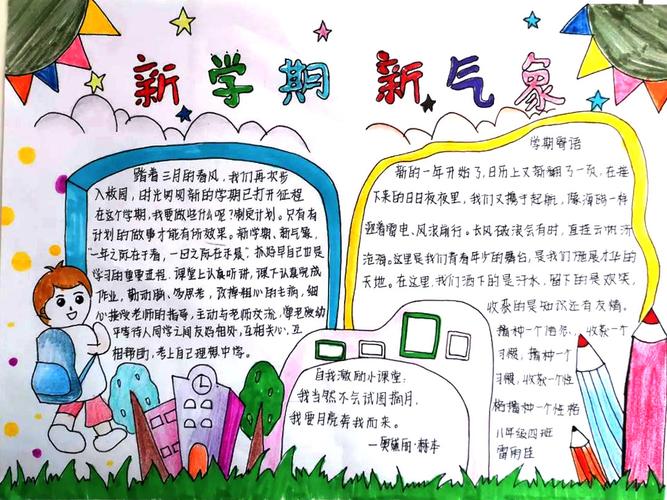 新学期 新气象
踏着三月的春风,我们再次步
入校园,时光匆匆新的学期已打开征程
在这个学期,我要做些什么呢?制定计划。只有有
计划的做事才能有所效果。新学期、新气象,
一年之所在于春,一日之所在于晨
学习的重要进程,课堂上认真听讲,课下认真完成
作业,勤动脑、多思考,改掉粗心的毛病,细
心接受老师的指导,主动与老师交流,
平等待人同学之间友好相处,互相关心,互
相帮助,考上自己理想中学。
学期寄语
新的一年开始了,日历上又新翻了一页,在接
下来的日日夜夜里,我们又携手起航,像海鸥一样
迎着雷电、风浪前行。长风破浪会有时,直挂云帆济
沧海。这里是我们青春年少的舞台,是我们施展才华的
天地。在这里,我们洒下的是汗水,留下的是欢笑,
收获的是知识还有友情。
播种一个 收获一个
习惯,播种一个
习惯,收获一个性
格播种一个性格
八年级四班
雷雨佳
自我激励小课堂:
我当然不会试图摘月,
我要月亮奔我而来。
—奥黛丽·赫本